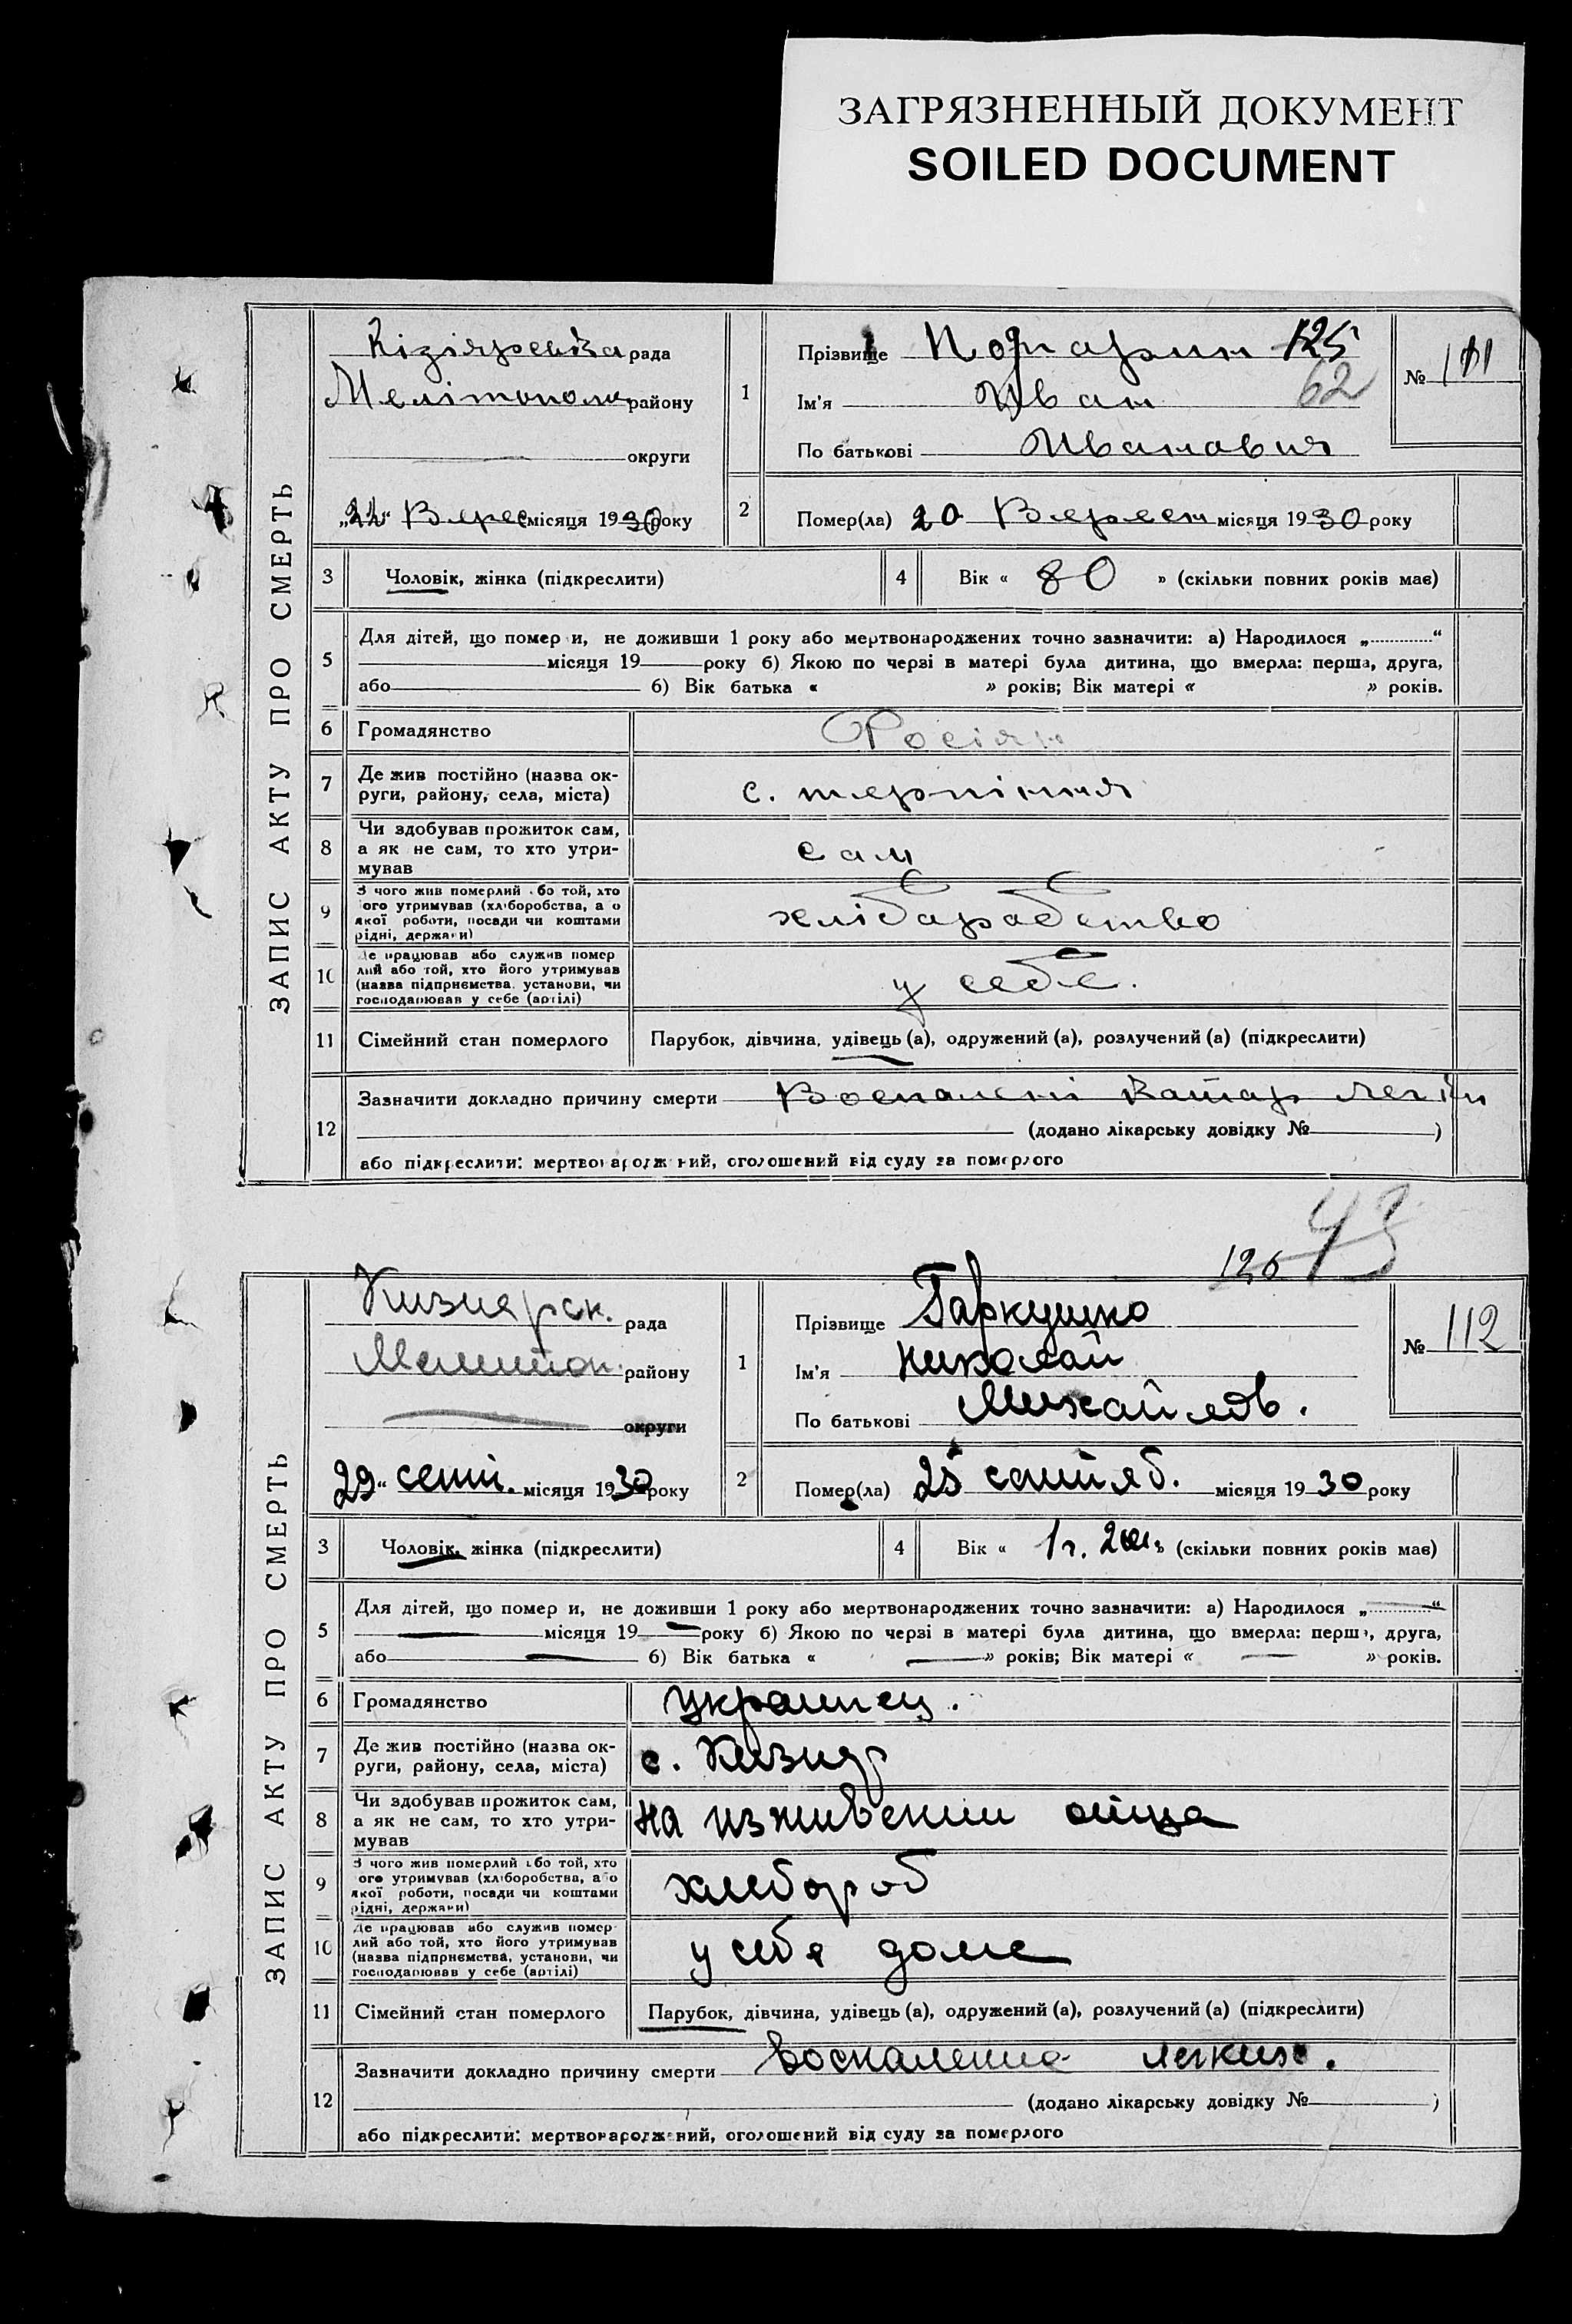 ЗАГРЯЗНЕННЫЙ ДОКУМЕНТ
SOILED DOCUMENT
ЗАПИС АКТУ ПРО СМЕРТЬ
рада
району
округи
місяця 1930 року
1
Прізвище 125
62
Ім'я Иван
По батькові Иванович
№ 111
2
Помер(ла) 20 місяця 1930 року
3
Чоловік, жінка (підкреслити)
4
Вік « 80 » (скільки повних років має)
5
Для дітей, що померли, не доживши 1 року або мертвонароджених точно зазначити: а) Народилося „ “
місяця 19 року б) Якою по черзі в матері була дитина, що вмерла: перша, друга,
або б) Вік батька « » років; Вік матері « » років.
6
Громадянство Росіян
7
Де жив постійно (назва ок-
руги, району, села, міста)
с. терпіння
8
Чи здобував прожиток сам,
а як не сам, то хто утри-
мував
сам
9
З чого жив померлий або той, хто
ого утримував (хліборобства, а о
якої роботи, посади чи коштами
рідні, держави)
хлібаробство
10
Де працював або служив помер
лий або той, хто його утримував
(назва підприємства, установи, чи
господарював у себе (артілі)
у себе.
11
Сімейний стан померлого
Парубок, дівчина, удівець (а), одружений (а), розлучений (а) (підкреслити)
12
Зазначити докладно причину смерти
(додано лікарську довідку № )
або підкреслити: мертвонароджений, оголошений від суду за померлого
43
126
ЗАПИС АКТУ ПРО СМЕРТЬ
Кизиярск. рада
Мелитоп. району
округи
29“ сент. місяця 1930 року
1
Прізвище Гаркушко
Ім'я Николай
По батькові Михайлов.
№ 112
2
Помер(ла) 25 сентяб. місяця 1930 року
3
Чоловік, жінка (підкреслити)
4
Вік « 1 г. 2 м. » (скільки повних років має)
5
Для дітей, що померли, не доживши 1 року або мертвонароджених точно зазначити: а) Народилося „ “
місяця 19 року б) Якою по черзі в матері була дитина, що вмерла: перша, друга,
або б) Вік батька « » років; Вік матері « » років.
6
Громадянство украинец.
7
Де жив постійно (назва ок-
руги, району, села, міста)
с. Кизияр
8
Чи здобував прожиток сам,
а як не сам, то хто утри-
мував
на иждивении отца
9
З чого жив померлий або той, хто
ого утримував (хліборобства, або
якої роботи, посади чи коштами
рідні, держави)
хлебороб
10
Де працював або служив помер
лий або той, хто його утримував
(назва підприємства, установи, чи
господарював у себе (артілі)
у себя доме
11
Сімейний стан померлого
Парубок, дівчина, удівець (а), одружений (а), розлучений (а) (підкреслити)
12
Зазначити докладно причину смерти воспаление легких.
(додано лікарську довідку № )
або підкреслити: мертвонароджений, оголошений від суду за померлого